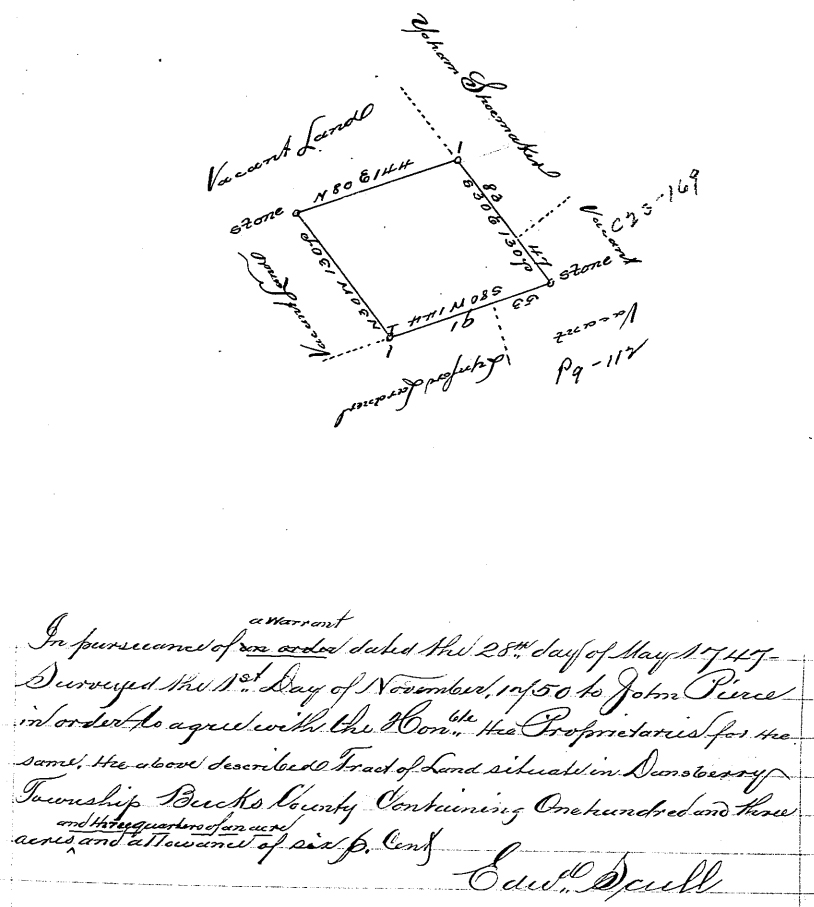 Yoham Shoemaker
Vacant Land
1
N 80 E 144
stone
82
S 30 E 130 p
47
Vacant
C23-169
stone
N 30 W 130 p
Vacant Land
1
S 80 W 144
91
53
1
Vacant
P9-112
Lynford Lardner
a warrant
In pursuance of an order dated the 28th day of May 1747-
Surveyed the 1st Day of November, 1750 to John Pierce
in order to agree with the Honble the Proprietaries for the
same, the above described Tract of Land situate in Dansberry
Township Bucks County Containing One hundred and three
and three quarters of an acre
acres ^ and allowance of six p. Cent
Edwd Scull